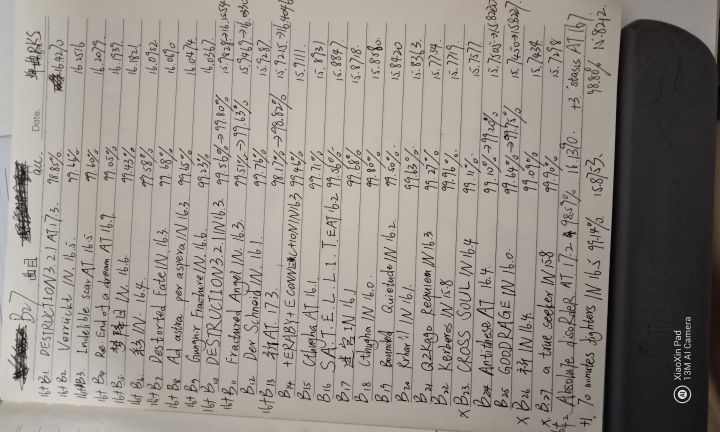 B27 曲目 acc. Date. 单曲RKS
16+ B1 DESTRUCTION 3.2.1 AT 17.3. 98.80% 16.4270
16+ B2 Verrückt IN 16.5. 99.46% 16.2516
16+ B3 Indelible scar AT 16.5. 99.40% 16.2079
16+ B4 Re: End of a dream AT 16.9. 99.05% 16.1939
16+ B5 IN 16.6 99.43% 16.1821
16+ B6 IN 16.4. 99.58% 16.0952
16+ B7 Distorted Fate IN 16.3 99.68% 16.0690
16+ B8 Ad astra per aspera IN 16.3 99.65% 16.0474
16+ B9 Gungnir Fracture IN 16.6. 99.23% 16.0367
16+ B10 DESTRUCTION 3.2.1 IN 16.3 99.56%→99.80% 15.9828→16.1554
16+ B11 Fractured Angel IN 16.3. 99.51%→99.63% 15.9469→16.0330
B12 Der Schneid IN 16.1. 99.76% 15.9287
16+ B13 AT 17.3 98.17%→98.82% 15.9215→16.4416
B14 +ERABY+E CONNEC+ION IN 16.3 99.46% 15.9111.
B15 Cthugha AT 16.1 99.71% 15.8931
B16 S.A.T.E.L.L.I.T.E AT 16.2 99.56% 15.8847
B17 IN 16.1 99.68% 15.8718.
B18 Cthugha IN 16.0. 99.80% 15.8580.
B19 Bounded Quietude IN 16.2. 99.50% 15.8420
B20 Rrhar'il IN 16.1. 99.63% 15.8363.
B21 QZKago Requiem IN 16.3 99.27% 15.7754
B22 Kerberos IN 15.8 99.96% 15.7719
×B23 CROSS SOUL IN 16.4 99.11% 15.7577
B24 Antithese AT 16.4 99.10%→99.20%
B25 GOODRAGE IN 16.0. 99.64%→99.75%
×B26 IN 16.4 99.09% 15.7434
×B27 a time seeker IN 15.8 99.90% 15.7398
+2 Absolute disordeR AT 17.2 98.59% 16.1370. +3 Stasis AT 16.7
+1. 70 minutes fighters IN 16.5 99.14% 15.8753. 98.80% 15.8242.
XiaoXin Pad
13M AI Camera